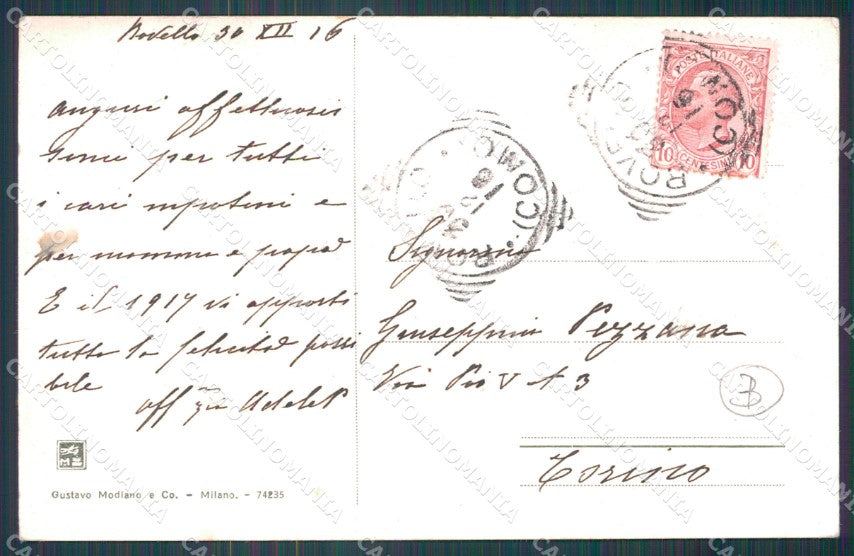 Rovello 30 XII 16
auguri affettuosis
simi per tutti
i cari nipotini e
per mamma e papà
E il 1917 vi apporti
tutta la felicità possi
bile
aff zia Adele P
Gustavo Modiano e Co. – Milano. – 74235
POSTE ITALIANE
10 CENTESIMI 10
(COMO)
16
(COMO)
16
Signorina
Giuseppina Pezzana
Via Pio V N 3
Torino
B
CARTOLINOMANIA